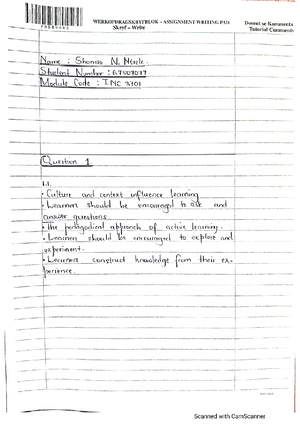 WERKOPDRAGSKRYFBLOK - ASSIGNMENT WRITING PAD
Skryf - Write
Dosent se Komments
Tutorial Comments
Name : Shanisa N.
Student Number :
Module Code : INC 3701
Question 1
1.1.
• Culture and context influence learning
• Learners should be encouraged to ask and
answer questions.
• The pedagodical approach of active learning.
• Learners should be encouraged to explore and
experiment.
• Learners construct knowledge from their ex-
perience.
Scanned with CamScanner